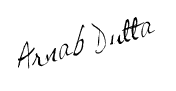 Arnab Dutta